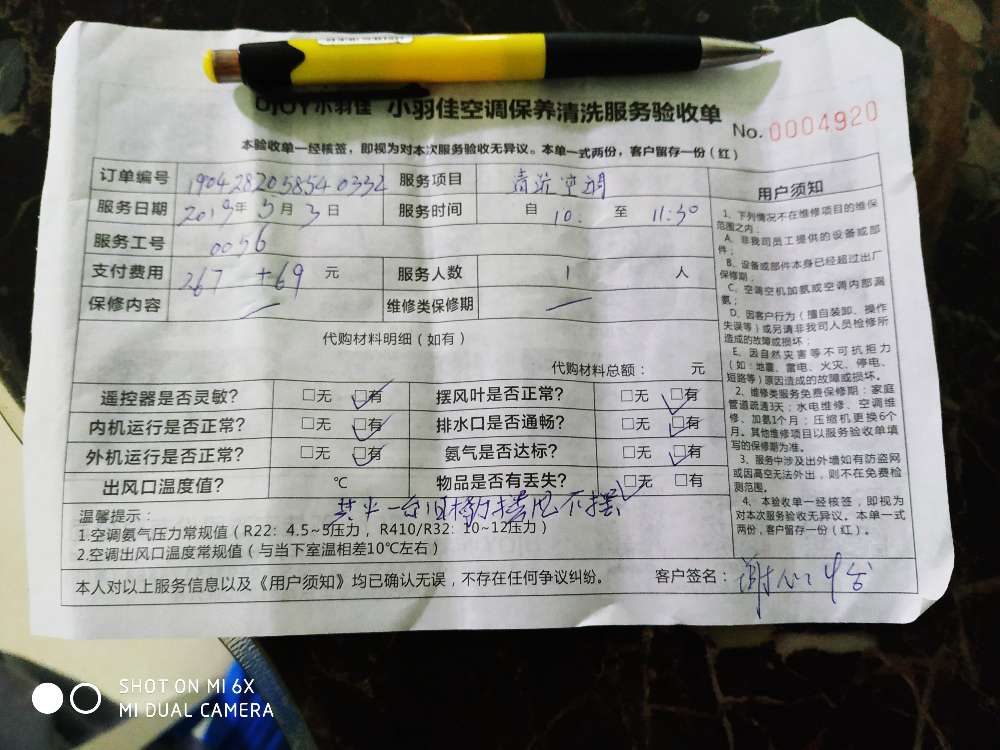 UJOY小羽佳 小羽佳空调保养清洗服务验收单
No. 0004920
本验收单一经核签，即视为对本次服务验收无异议。本单一式两份，客户留存一份（红）
订单编号 190428205854 0332 服务项目 清洗空调
服务日期 2019年5月3日 服务时间 自 10: 至 11:30
服务工号 0056
支付费用 267 +69 元 服务人数 1 人
保修内容 / 维修类保修期 /
代购材料明细（如有）
代购材料总额： 元
遥控器是否灵敏? □无 □有 摆风叶是否正常? □无 □有
内机运行是否正常? □无 □有 排水口是否通畅? □无 □有
外机运行是否正常? □无 □有 氨气是否达标? □无 □有
出风口温度值? ℃ 物品是否有丢失? □无 □有
其中一台 不摆
温馨提示：
1.空调氨气压力常规值（R22: 4.5~5压力，R410/R32: 10~12压力）
2.空调出风口温度常规值（与当下室温相差10℃左右）
本人对以上服务信息以及《用户须知》均已确认无误，不存在任何争议纠纷。 客户签名：谢
用户须知
1、下列情况不在维修项目的维保
范围之内：
A、非我司员工提供的设备或部
件；
B、设备或部件本身已经超过出厂
保修期；
C、空调空机加氨或空调内部漏
氨；
D、因客户行为（擅自装卸、操作
失误等）或另请非我司人员检修所
造成的故障或损坏；
E、因自然灾害等不可抗拒力
（如:地震、雷电、火灾、停电、
短路等）原因造成的故障或损坏。
2、维修类服务免费保修期：家庭
管道疏通3天；水电维修、空调维
修、加氨1个月；压缩机更换6个
月。其他维修项目以服务验收单填
写的保修期为准。
3、服务中涉及出外墙如有防盗网
或因高空无法外出，则不在免费检
测范围。
4、本验收单一经核签，即视为
对本次服务验收无异议。本单一式
两份，客户留存一份（红）。
SHOT ON MI 6X
MI DUAL CAMERA